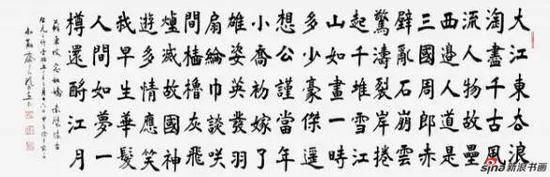 大江東去浪
淘盡千古風
流人物故壘
西邊人道是
三國周郎赤
壁亂石崩雲
驚濤裂岸捲
起千堆雪江
山如畫一時
多少豪傑遙
想公謹當年
小喬初嫁了
雄姿英發羽
扇綸巾談咲
間檣櫓灰飛
煙滅故國神
遊多情應笑
我早生華髮
人間如夢一
樽還酹江月
蘇東坡念奴嬌赤壁懷古
sina新浪书画